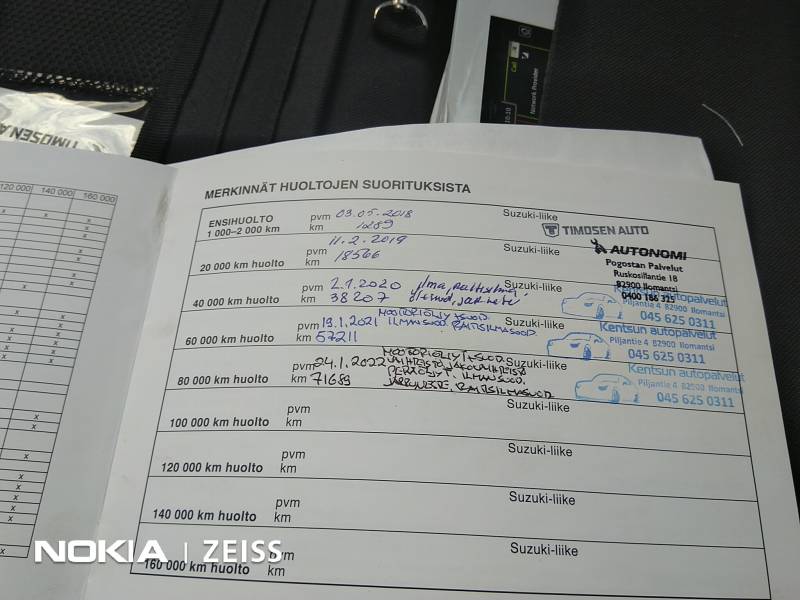 Call
Network Provider
10:19
TIMOSEN A
120 000 140 000 160 000
MERKINNÄT HUOLTOJEN SUORITUKSISTA
ENSIHUOLTO pvm 03.05.2018 Suzuki-liike TIMOSEN AUTO
1 000–2 000 km km 1289
20 000 km huolto pvm 11.2.2019 Suzuki-liike AUTONOMI
km 18566 Pogostan Palvelut
Ruskosillantie 18
82900 Ilomantsi
0400 186 325
40 000 km huolto pvm 2.1.2020 Suzuki-liike Kentsun autopalvelut
km 38207 Piljantie 4 82900 Ilomantsi
045 625 0311
60 000 km huolto pvm 13.1.2021 MOOTTORIÖLJY+SUOD. ILMANSUOD. RAITISILMASUOD. Suzuki-liike Kentsun autopalvelut
km 57211 Piljantie 4 82900 Ilomantsi
045 625 0311
80 000 km huolto pvm 24.1.2022 MOOTTORIÖLJY+SUOD. Suzuki-liike Kentsun autopalvelut
km 71659 ILMANSUOD. Piljantie 4 82900 Ilomantsi
JARRUNESTE, RAITISILMASUOD. 045 625 0311
100 000 km huolto pvm Suzuki-liike
km
120 000 km huolto pvm Suzuki-liike
km
140 000 km huolto pvm Suzuki-liike
km
160 000 km huolto pvm Suzuki-liike
km
NOKIA | ZEISS